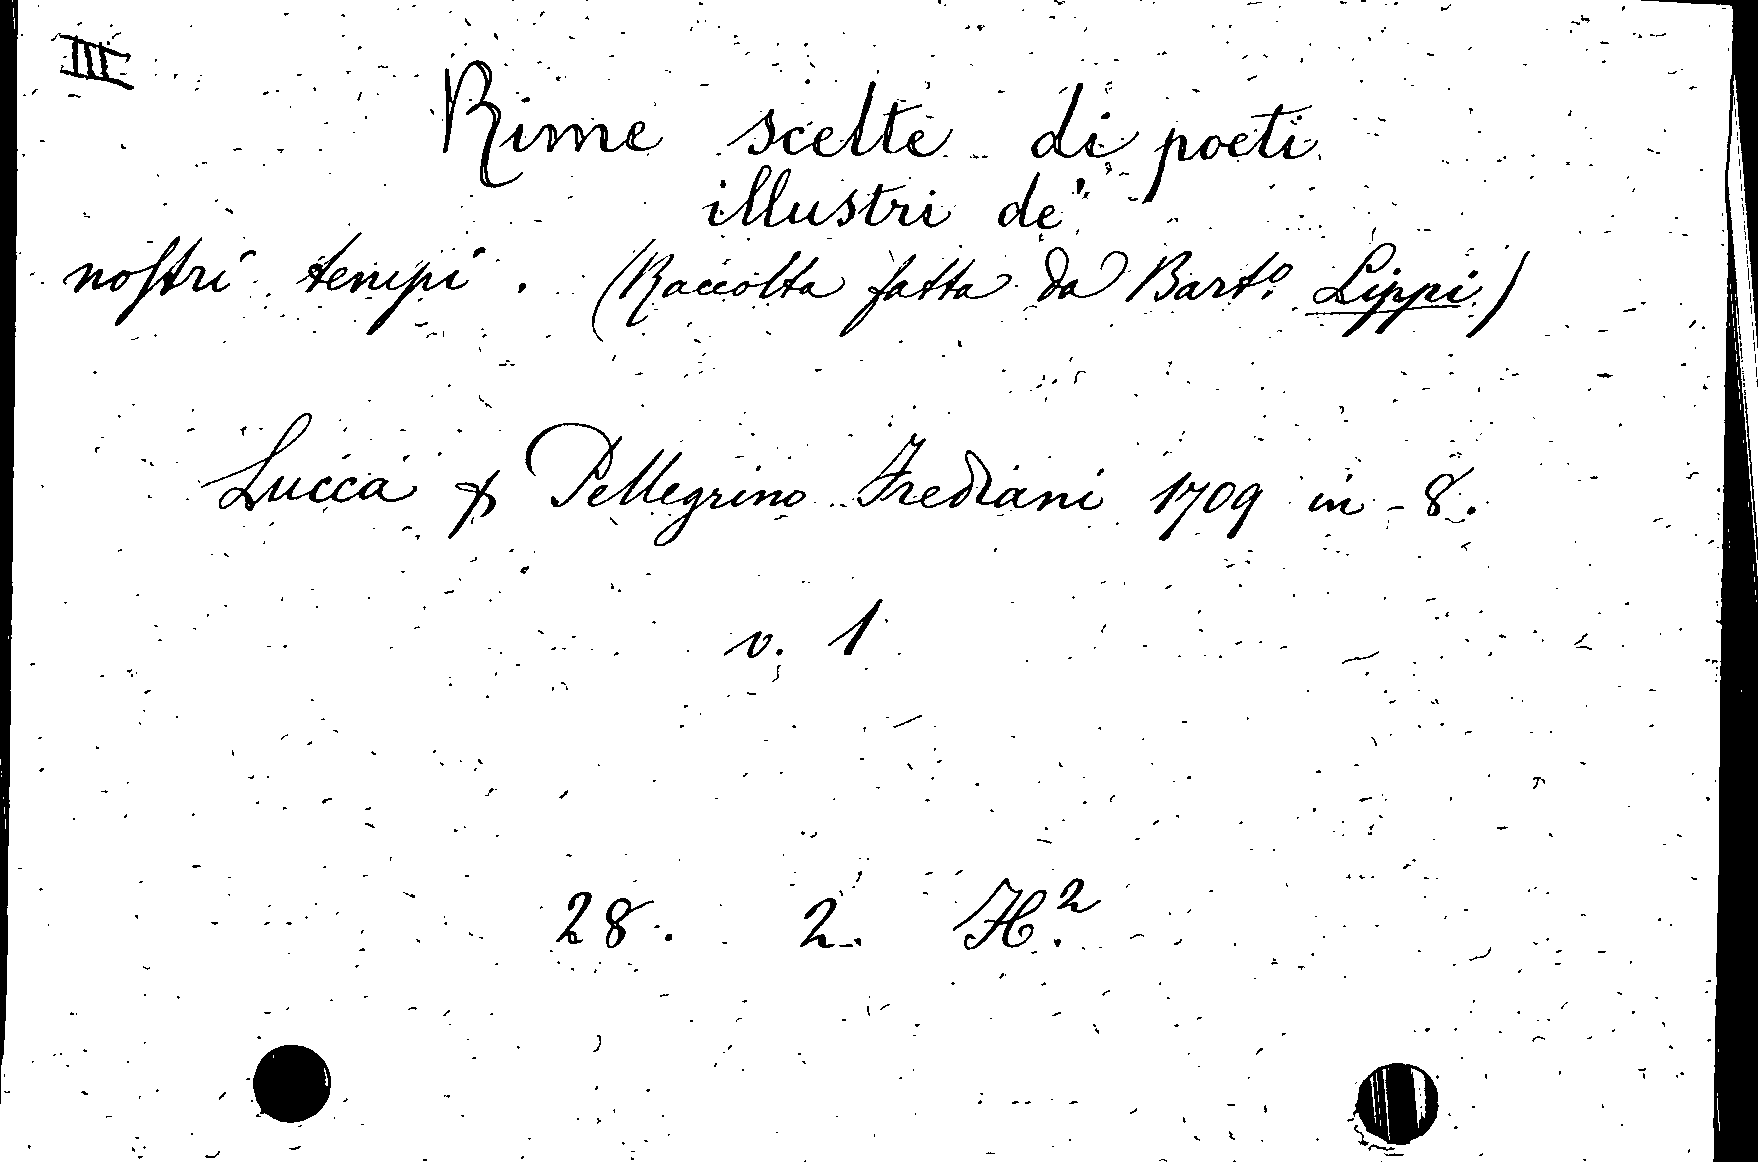 III
Rime scelte di poeti
illustri de'
nostri tempi. (Raccolta fatta da Bart.º Lippi.)
Lucca p Pellegrino Frediani 1709 in-8.
v. 1
28. 2. H.²